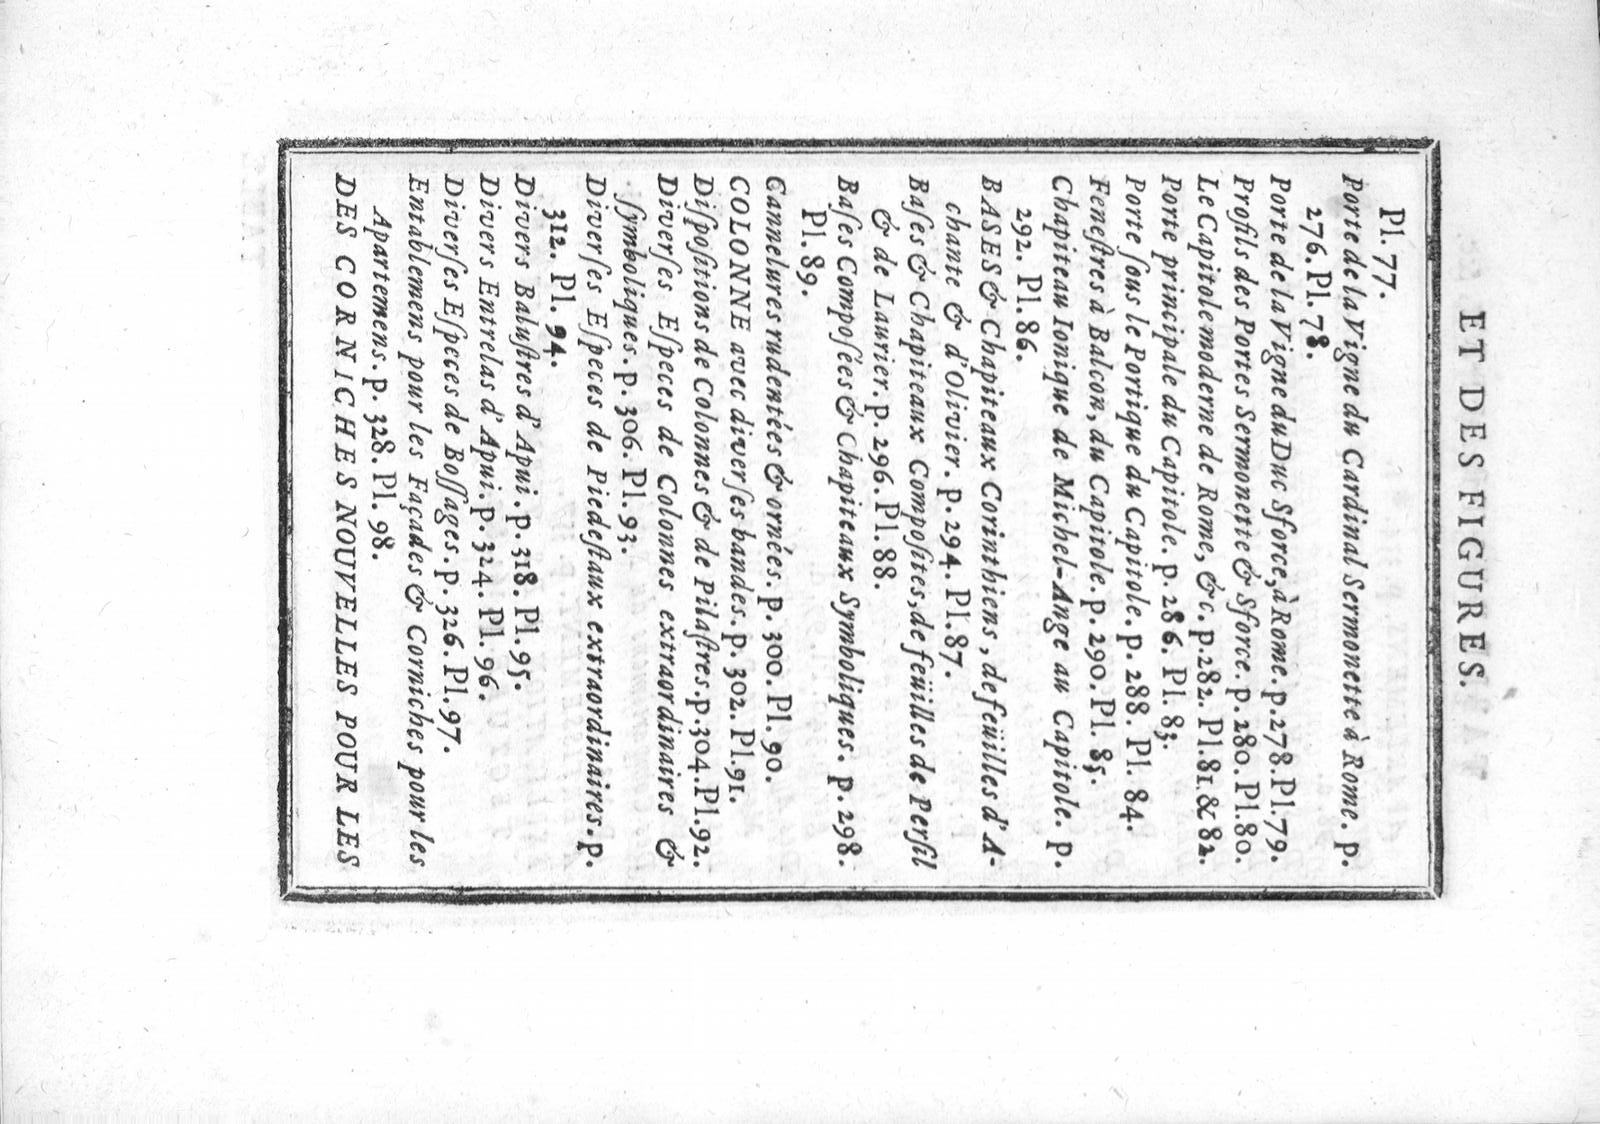 ET DES FIGURES.
Pl. 77.
Porte de la Vigne du Cardinal Sermonette à Rome. p.
276. Pl. 78.
Porte de la Vigne du Duc Sforce, à Rome. p. 278. Pl. 79.
Profils des Portes Sermonette & Sforce. p. 280. Pl. 80.
Le Capitole moderne de Rome, &c. p. 282. Pl. 81. & 82.
Porte principale du Capitole. p. 286. Pl. 83.
Porte ſous le Portique du Capitole. p. 288. Pl. 84.
Feneſtres à Balcon, du Capitole. p. 290. Pl. 85.
Chapiteau Ionique de Michel-Ange au Capitole. p.
292. Pl. 86.
BASES & Chapiteaux Corinthiens, de feüilles d'A-
chante & d'Olivier. p. 294. Pl. 87.
Baſes & Chapiteaux Compoſites, de feüilles de Perſil
& de Laurier. p. 296. Pl. 88.
Baſes Compoſées & Chapiteaux Symboliques. p. 298.
Pl. 89.
Cannelures rudentées & ornées. p. 300. Pl. 90.
COLONNE avec diverſes bandes. p. 302. Pl. 91.
Diſpoſitions de Colonnes & de Pilaſtres. p. 304. Pl. 92.
Diverſes Eſpeces de Colonnes extraordinaires &
ſymboliques. p. 306. Pl. 93.
Diverſes Eſpeces de Piedeſtaux extraordinaires. p.
312. Pl. 94.
Divers Baluſtres d'Apui. p. 318. Pl. 95.
Divers Entrelas d'Apui. p. 324. Pl. 96.
Diverſes Eſpeces de Boſſages. p. 326. Pl. 97.
Entablemens pour les Façades & Corniches pour les
Apartemens. p. 328. Pl. 98.
DES CORNICHES NOUVELLES POUR LES